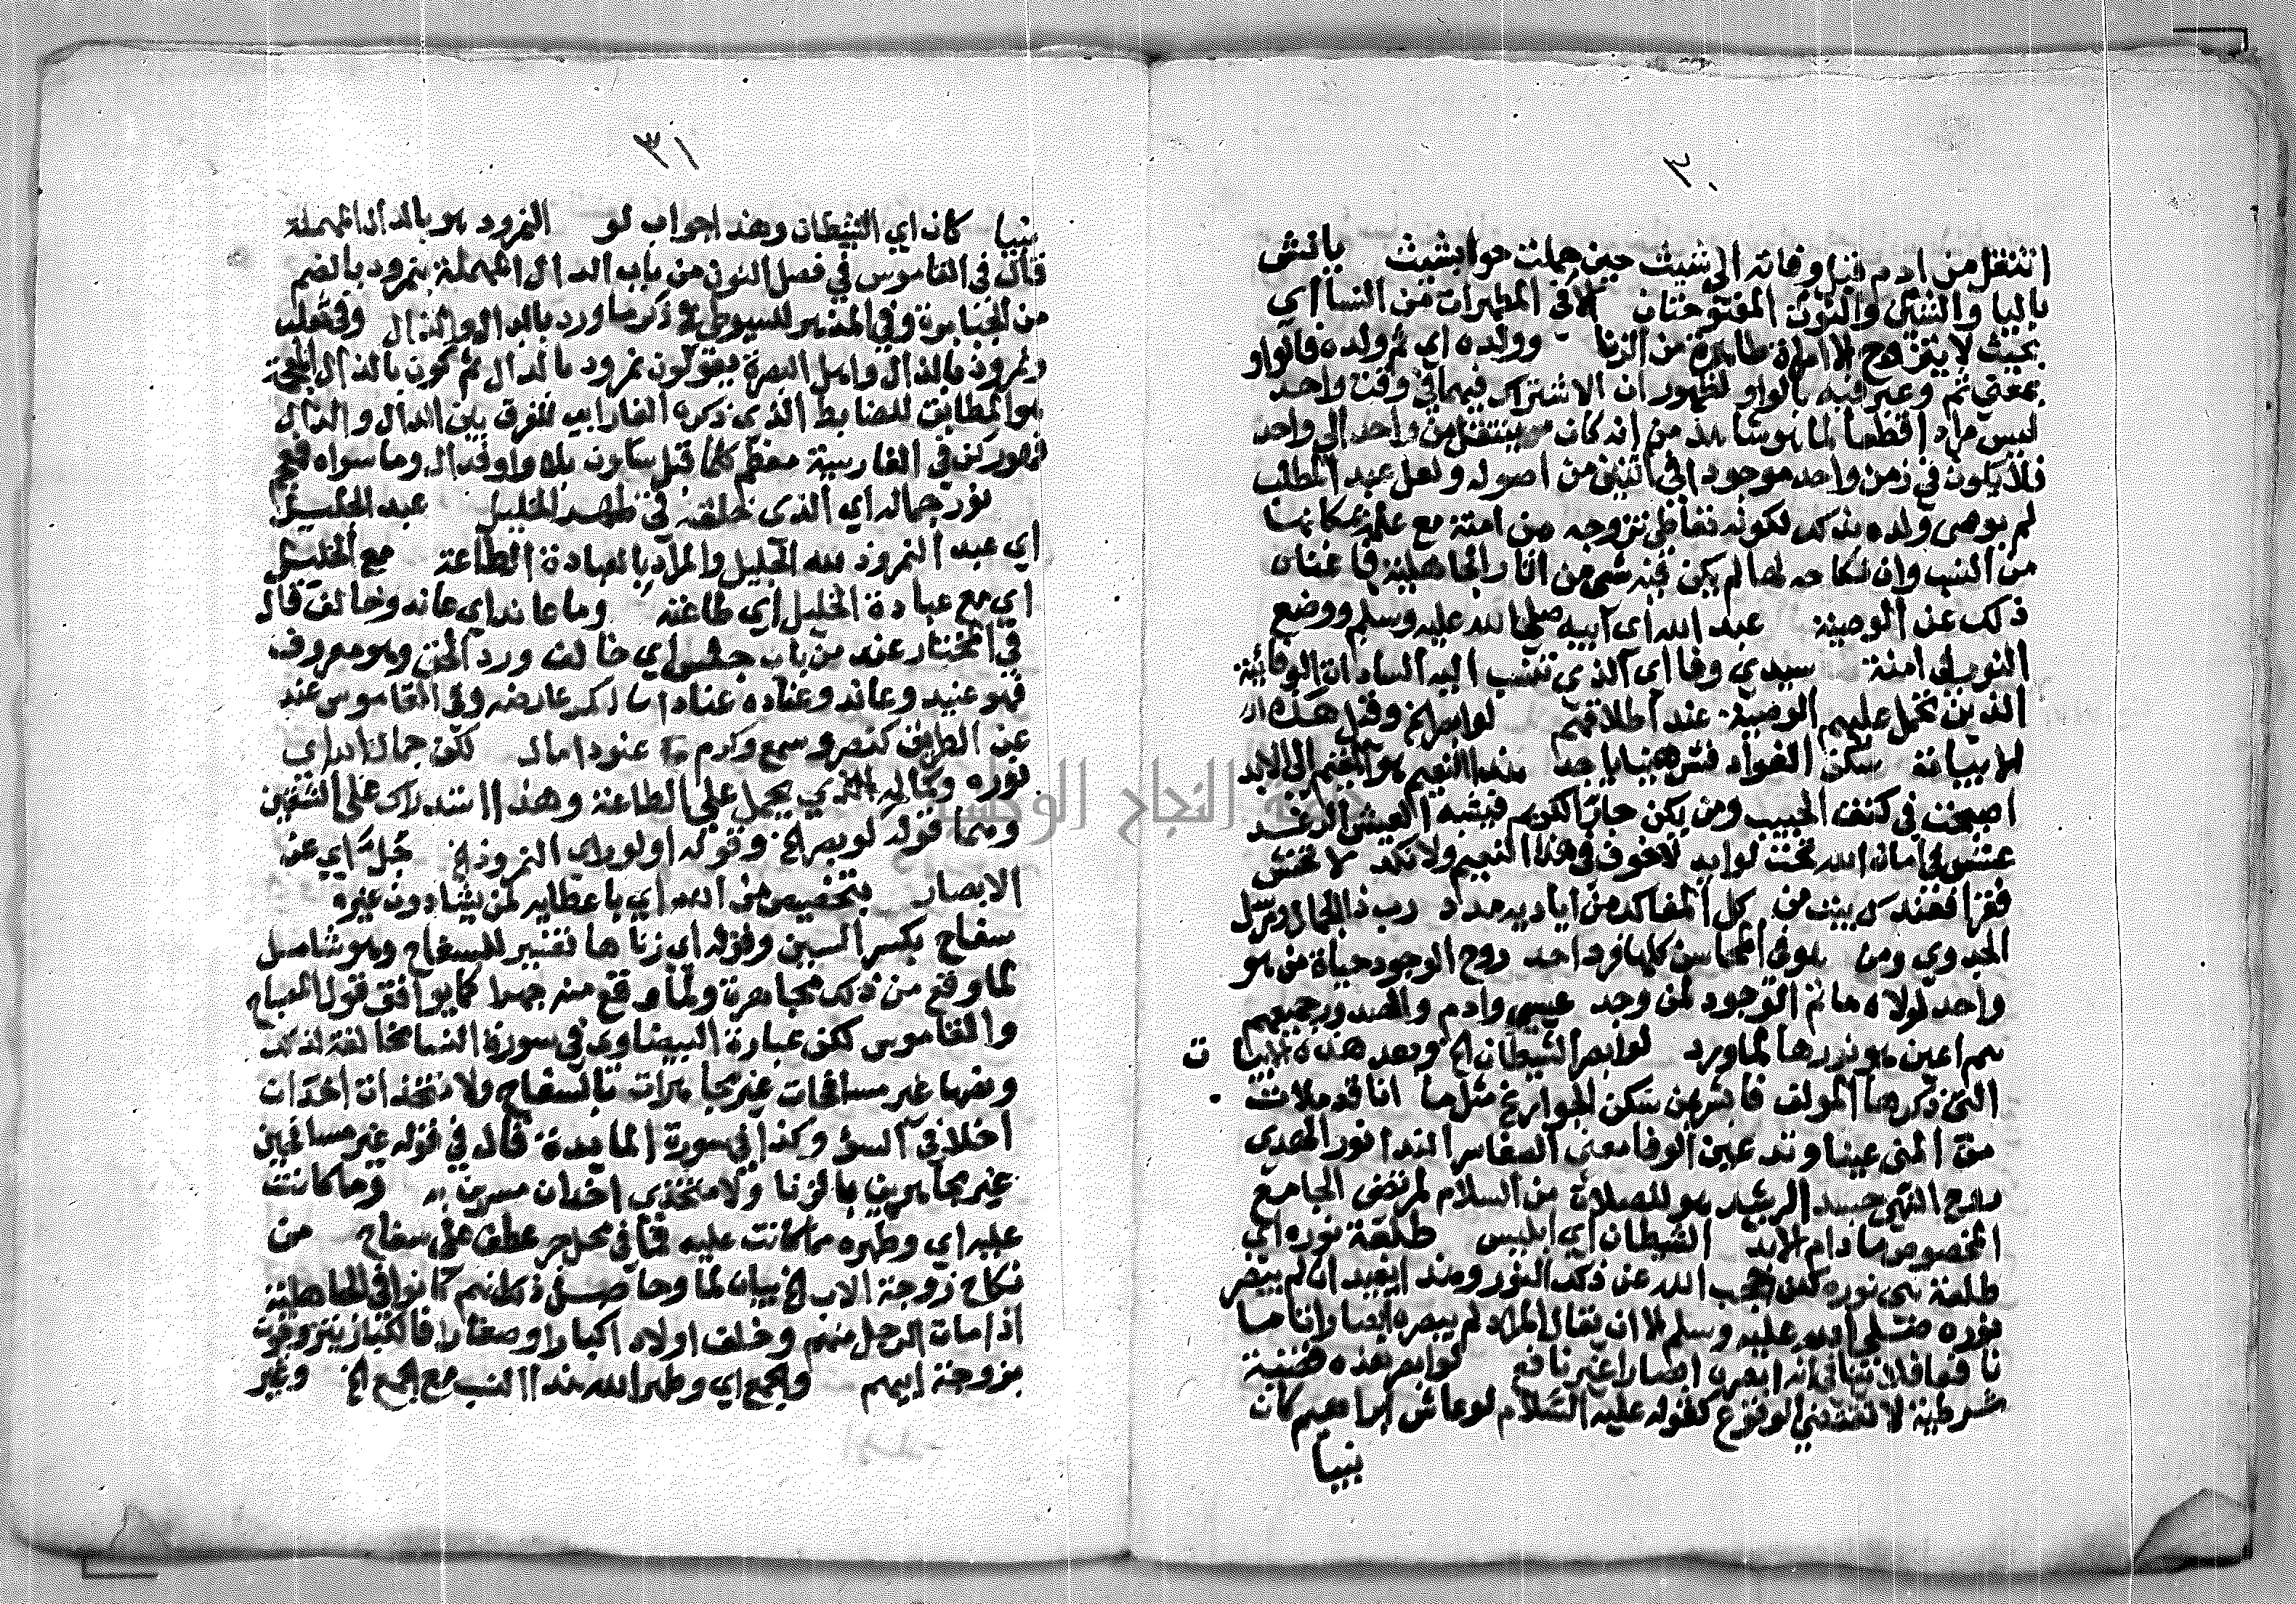 ٣٠
انتقل من ادم قبل وفاته الى شيث حين حملت حوا بشيث يانش
باليا والشين والنون المفتوحتان الا في المطهرات من النسا اي
بحيث لا يتزوج الا امراة طاهرة من الزنا وولده اي ثم ولده فالواو
بمعنى ثم وعبر فيه بالواو لظهور ان الاشتراك فيهما في وقت واحد
ليس مراد اقطعا لما هو شاهد من انه كان ينتقل من واحد الى واحد
فلا يكون في زمن واحد موجودا في اثنين من اصوله ولعل عبد المطلب
لم يوصى ولده بذلك لكونه تعاطى تزوجه من امنة مع علمه بمكانها
من النسب وان نكاحه لها لم يكن فيه شي من اثار الجاهلية فاغناه
ذلك عن الوصية عبد الله اى ابيه صلى الله عليه وسلم ووضع
النور في امنة سيدي وفا اى الذي تنسب اليه السادات الوفائية
الذين تحمل عليهم الوصية عند اطلاقهم لو ابصر الخ وقبل هذه
الابيات سكن الفواد فعش هنيا يا جسد هذا النعيم هو المقيم الى الابد
اصبحت في كنف الحبيب ومن يكن جار الكريم فعيشه العيش الرغد
عش في امان الله تحت لوايه لا خوف في هذا النعيم ولا نكد لا تختش
فقرا فعندك بيت من كل المنا لك من اياديه مدد رب الجمال ومرسل
الجدوى ومن هو في المحاسن كلها فرد احد روح الوجود حياة من هو
واحد لولاه ما تم الوجود لمن وجد عيسى وادم والصدور جميعهم
هم اعين هو نورها لما ورد لو ابصر الشيطان الخ وبعد هذه الابيات
التي ذكرها المولف فابشر بمن سكن الجوارح مثل ما انا قد ملات
من المنى عينا ويد عين الوفا معنى الصفا سر الندا نور الهدى
روح النهى جسد الرشد هو للصلاة من السلام المرتضى الجامع
المخصوص ما دام الابد الشيطان اي ابليس طلعة نوره اي
طلعة هي نوره لكن حجب الله عن ذلك النور وهذا يفيد ان لم يبصر
نوره صلى الله عليه وسلم الا ان يقال المراد لم يبصره ابصارا تاما
نافعا فلا ينافي انه ابصره ابصارا غير نافع لو ابصر هذه قضية
شرطية لا تقتضي الوقوع كقوله عليه السلام لو عاش ابراهيم كان
نبيا
٣١
نبيا كان اي الشيطان وهذا جواب لو النمرود هو بالدال المهملة
قال في القاموس في فصل النون من باب الدال المهملة نمرود بالضم
من الجبابرة وفي المزهر للسيوطي في ذكر ما ورد بالدال والذال
ونمروذ بالذال واهل البصرة يقولون نمرود بالدال ثم كون بالذال المعجمة
هو المطابق للضابط الذي ذكره الفارابي للفرق بين الدال والذال
في الفارسية كلما قبل سكون بلا واو فدال وما سواه فمعجم
نور جماله اي الذى خلقه في ظهر الخليل عبد الجليل
اي عبد النمروذ لله الجليل والمراد بالعبادة الطاعة مع الخليل
اي مع عبادة الخليل اي طاعته وما عاند اي عانه وخالف قال
في المختار عند من باب جلس اي خالف ورد الحق وهو يعرف
فهو عنيد وعاند وعانده عنادا بالكسر عارضه وفي القاموس عند
عن الطريق كنصر وسمع وكرم عنودا مال لكن جمال الله اي
نوره وكماله الذي يحمل على الطاعة وهذا استدراك على الشقين
وهما قوله لو ابصر الخ وقوله او لو راى النمروذ الخ جل اي عن
الابصار بتخصيص من الله اي باعطايه لمن يشا دون غيره
سفاح بكسر السين وقوله اى زنا هذا تفسير للسفاح وهو شامل
لما وقع من ذلك مجاهرة ولما وقع منه جهرا كما يوافق قول المصباح
والقاموس لكن عبارة البيضاوى في سورة النسا مخالفة لذلك
ونصها غير مسافحات غير مجاهرات بالسفاح ولا متخذات اخدان
اخلا في السر وكذا في سورة المايدة قال في قوله غير مسافحين
غير مجاهرين بالزنا ولا متخذى اخدان مسرين به وما كانت
عليه اي وطهره مما كانت عليه فما في محل جر عطف على سفاح من
نكاح زوجة الاب الخ بيان لما وحاصل ذلك انهم كانوا في الجاهلية
اذا مات الرجل منهم وخلف اولادا كبارا وصغارا فالكبار يتزوجون
بزوجة ابيهم والجمع اي وطهر الله هذا النسب مع الجمع الخ وغير